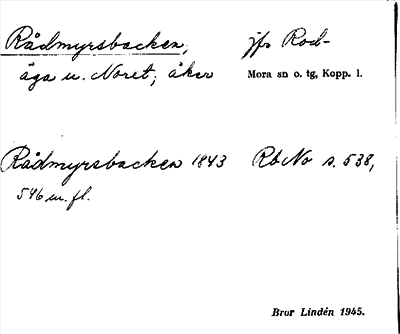 Rådmyrsbacken, jfr Rod-
äga u. Noret; åker Mora sn o. tg, Kopp. l.
Rådmyrsbacken 1843 Rb No s. 538,
546 m. fl.
Bror Lindén 1945.